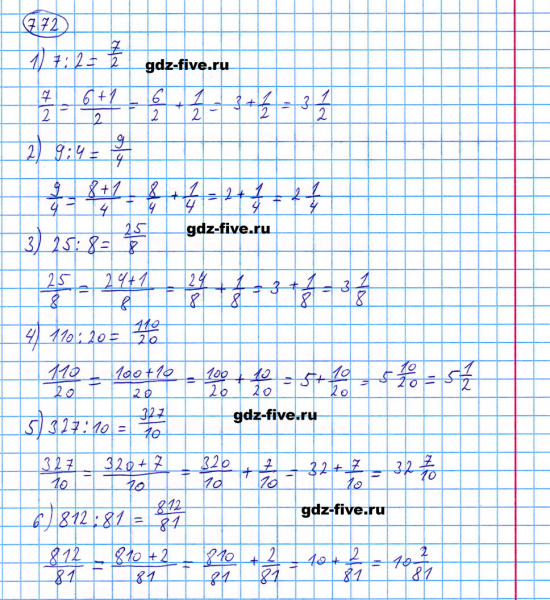 772
1) 7 : 2 = 7/2
gdz-five.ru
7/2 = (6+1)/2 = 6/2 + 1/2 = 3 + 1/2 = 3 1/2
2) 9 : 4 = 9/4
9/4 = (8+1)/4 = 8/4 + 1/4 = 2 + 1/4 = 2 1/4
gdz-five.ru
3) 25 : 8 = 25/8
25/8 = (24+1)/8 = 24/8 + 1/8 = 3 + 1/8 = 3 1/8
4) 110 : 20 = 110/20
110/20 = (100+10)/20 = 100/20 + 10/20 = 5 + 10/20 = 5 10/20 = 5 1/2
gdz-five.ru
5) 327 : 10 = 327/10
327/10 = (320+7)/10 = 320/10 + 7/10 = 32 + 7/10 = 32 7/10
gdz-five.ru
6) 812 : 81 = 812/81
812/81 = (810+2)/81 = 810/81 + 2/81 = 10 + 2/81 = 10 2/81